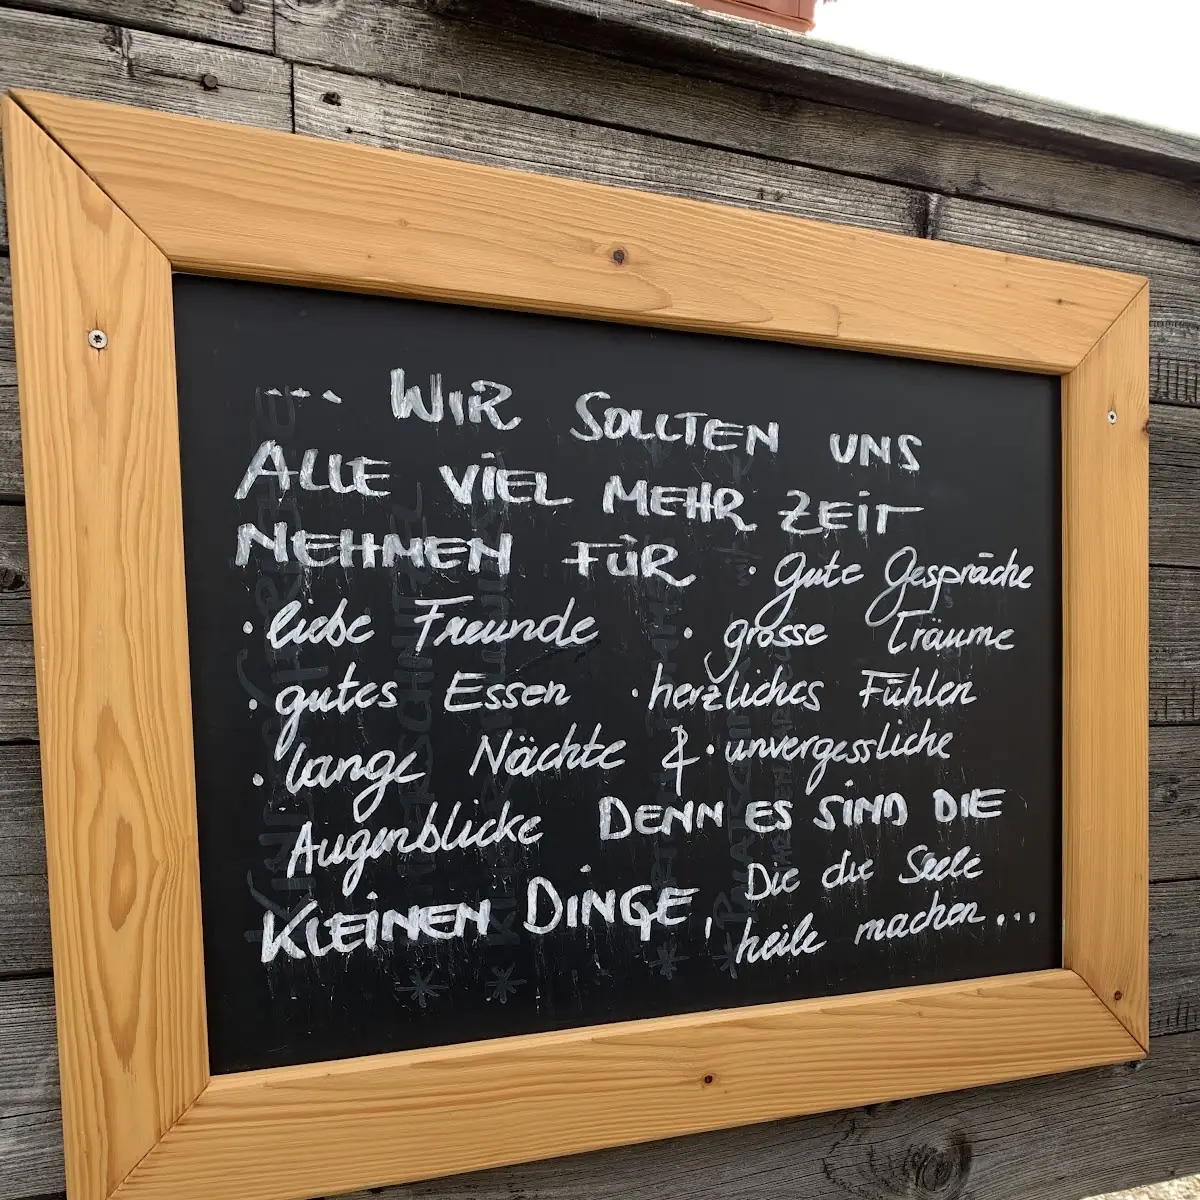 ... WIR SOLLTEN UNS
ALLE VIEL MEHR ZEIT
NEHMEN FÜR · gute Gespräche
· liebe Freunde · grosse Träume
· gutes Essen · herzliches Fühlen
· lange Nächte & · unvergessliche
Augenblicke DENN ES SIND DIE
KLEINEN DINGE, Die die Seele
heile machen...